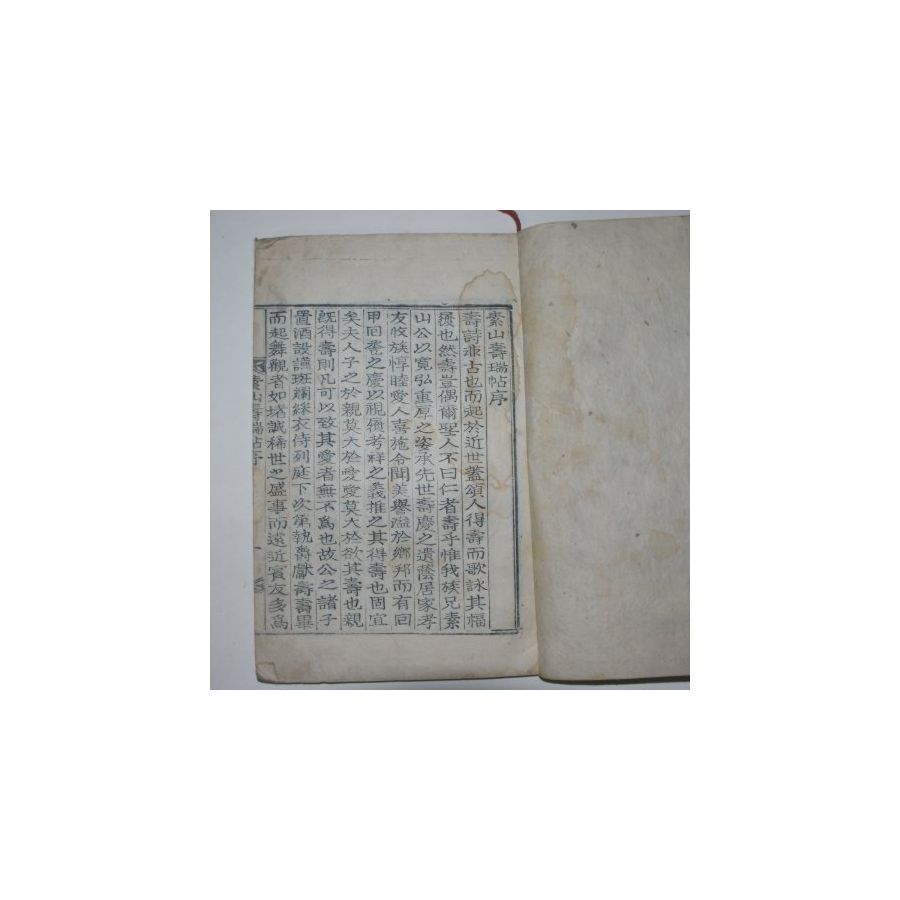 素山壽瑞帖序
壽詩非古也而起於近世蓋頌人得壽而歌詠其福
履也然壽豈偶爾聖人不曰仁者壽乎惟我族兄素
山公以寬弘重厚之姿承先世壽慶之遺蔭居家孝
友牧族惇睦愛人喜施令聞美譽溢於鄉邦而有回
甲回巹之慶以視履考祥之義推之其得壽也固宜
矣夫人子之於親莫大於愛愛莫大於欲其壽也親
旣得壽則凡可以致其愛者無不爲也故公之諸子
置酒設讌斑斕綵衣侍列庭下次第執爵獻壽壽畢
而起舞觀者如堵誠稀世之盛事而遠近賓友多爲
素山壽瑞帖序
一